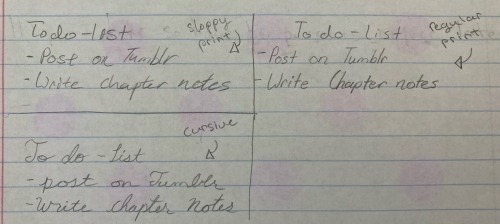 Todo-list
sloppy
print
- Post on Tumblr
- Write chapter notes
To do-list
regular
print
- Post on Tumblr
- Write Chapter notes
cursive
To do-list
- post on Tumblr
- Write chapter notes